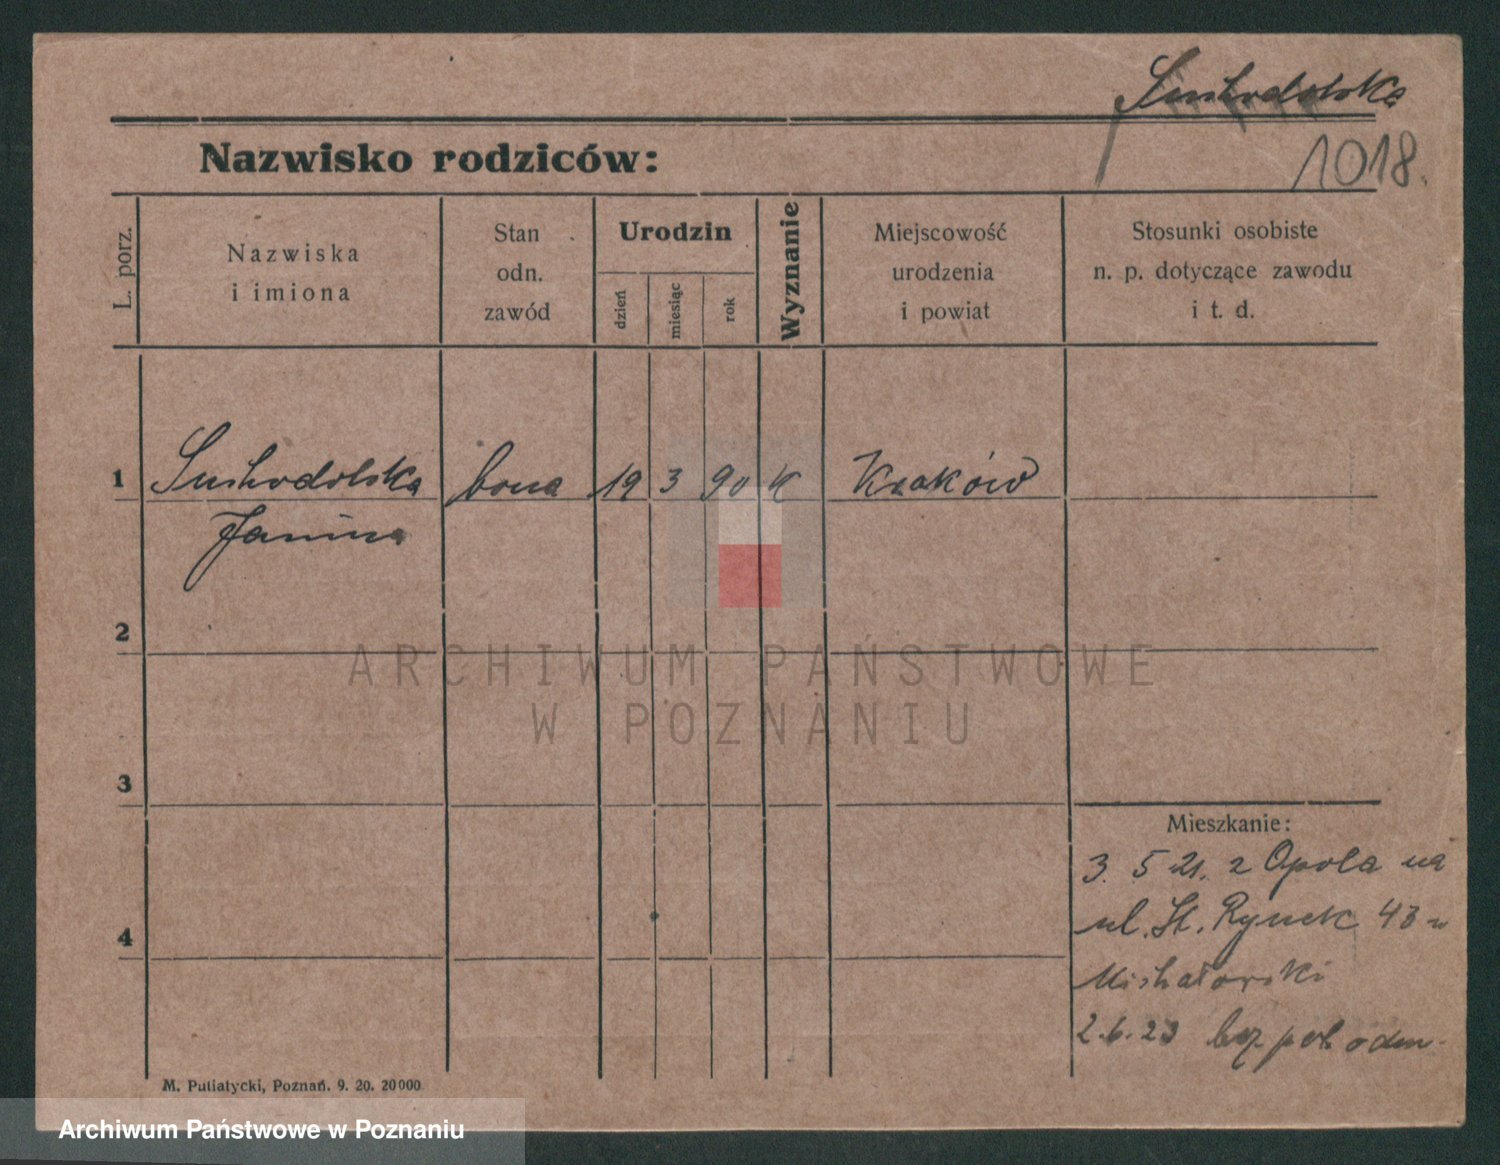 Suchodolska
1018.
Nazwisko rodziców:
L. porz.
Nazwiska
i imiona
Stan
odn.
zawód
Urodzin
dzień
miesiąc
rok
Wyznanie
Miejscowość
urodzenia
i powiat
Stosunki osobiste
n. p. dotyczące zawodu
i t. d.
1 Suchodolska bona 19 3 90 K Kraków
Janina
2
ARCHIWUM PAŃSTWOWE
W POZNANIU
3
Mieszkanie:
3. 5 21. z Opola na
ul. St. Rynek 43 u
4
2.6.23 bez pol. odm.
M. Putiatycki, Poznań. 9. 20. 20000
Archiwum Państwowe w Poznaniu